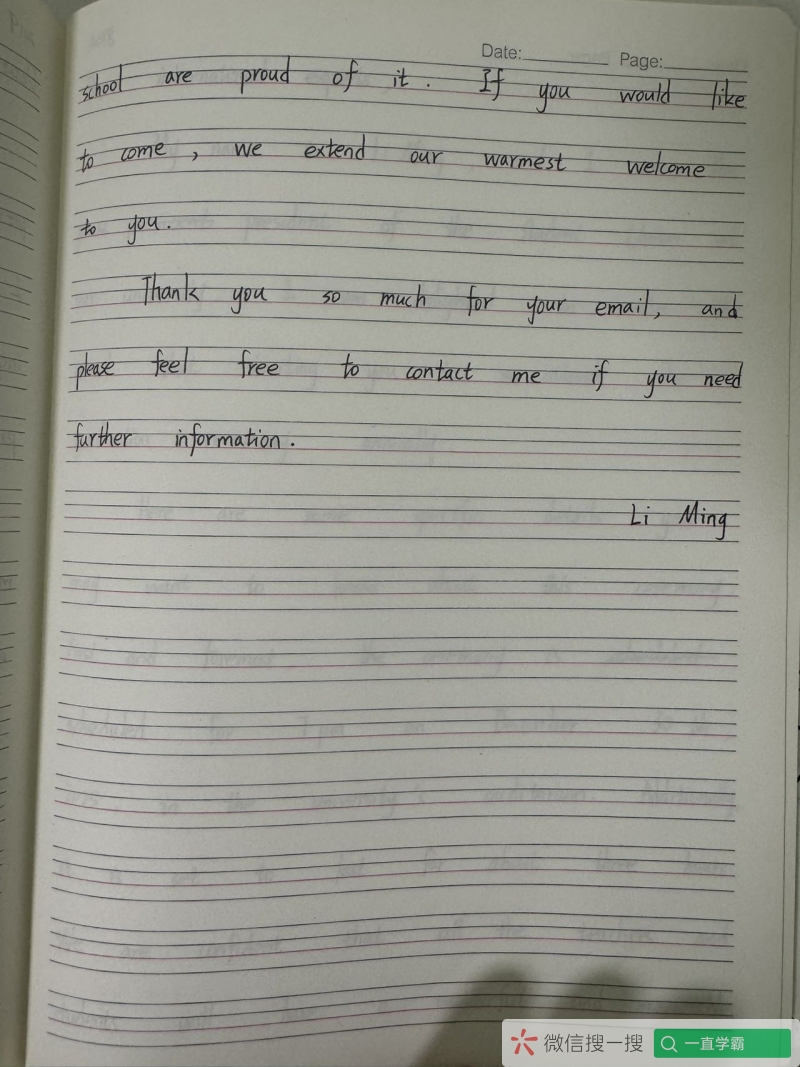 Date: Page:
school are proud of it. If you would like
to come, we extend our warmest welcome
to you.
Thank you so much for your email, and
please feel free to contact me if you need
further information.
Li Ming
微信搜一搜 一直学霸